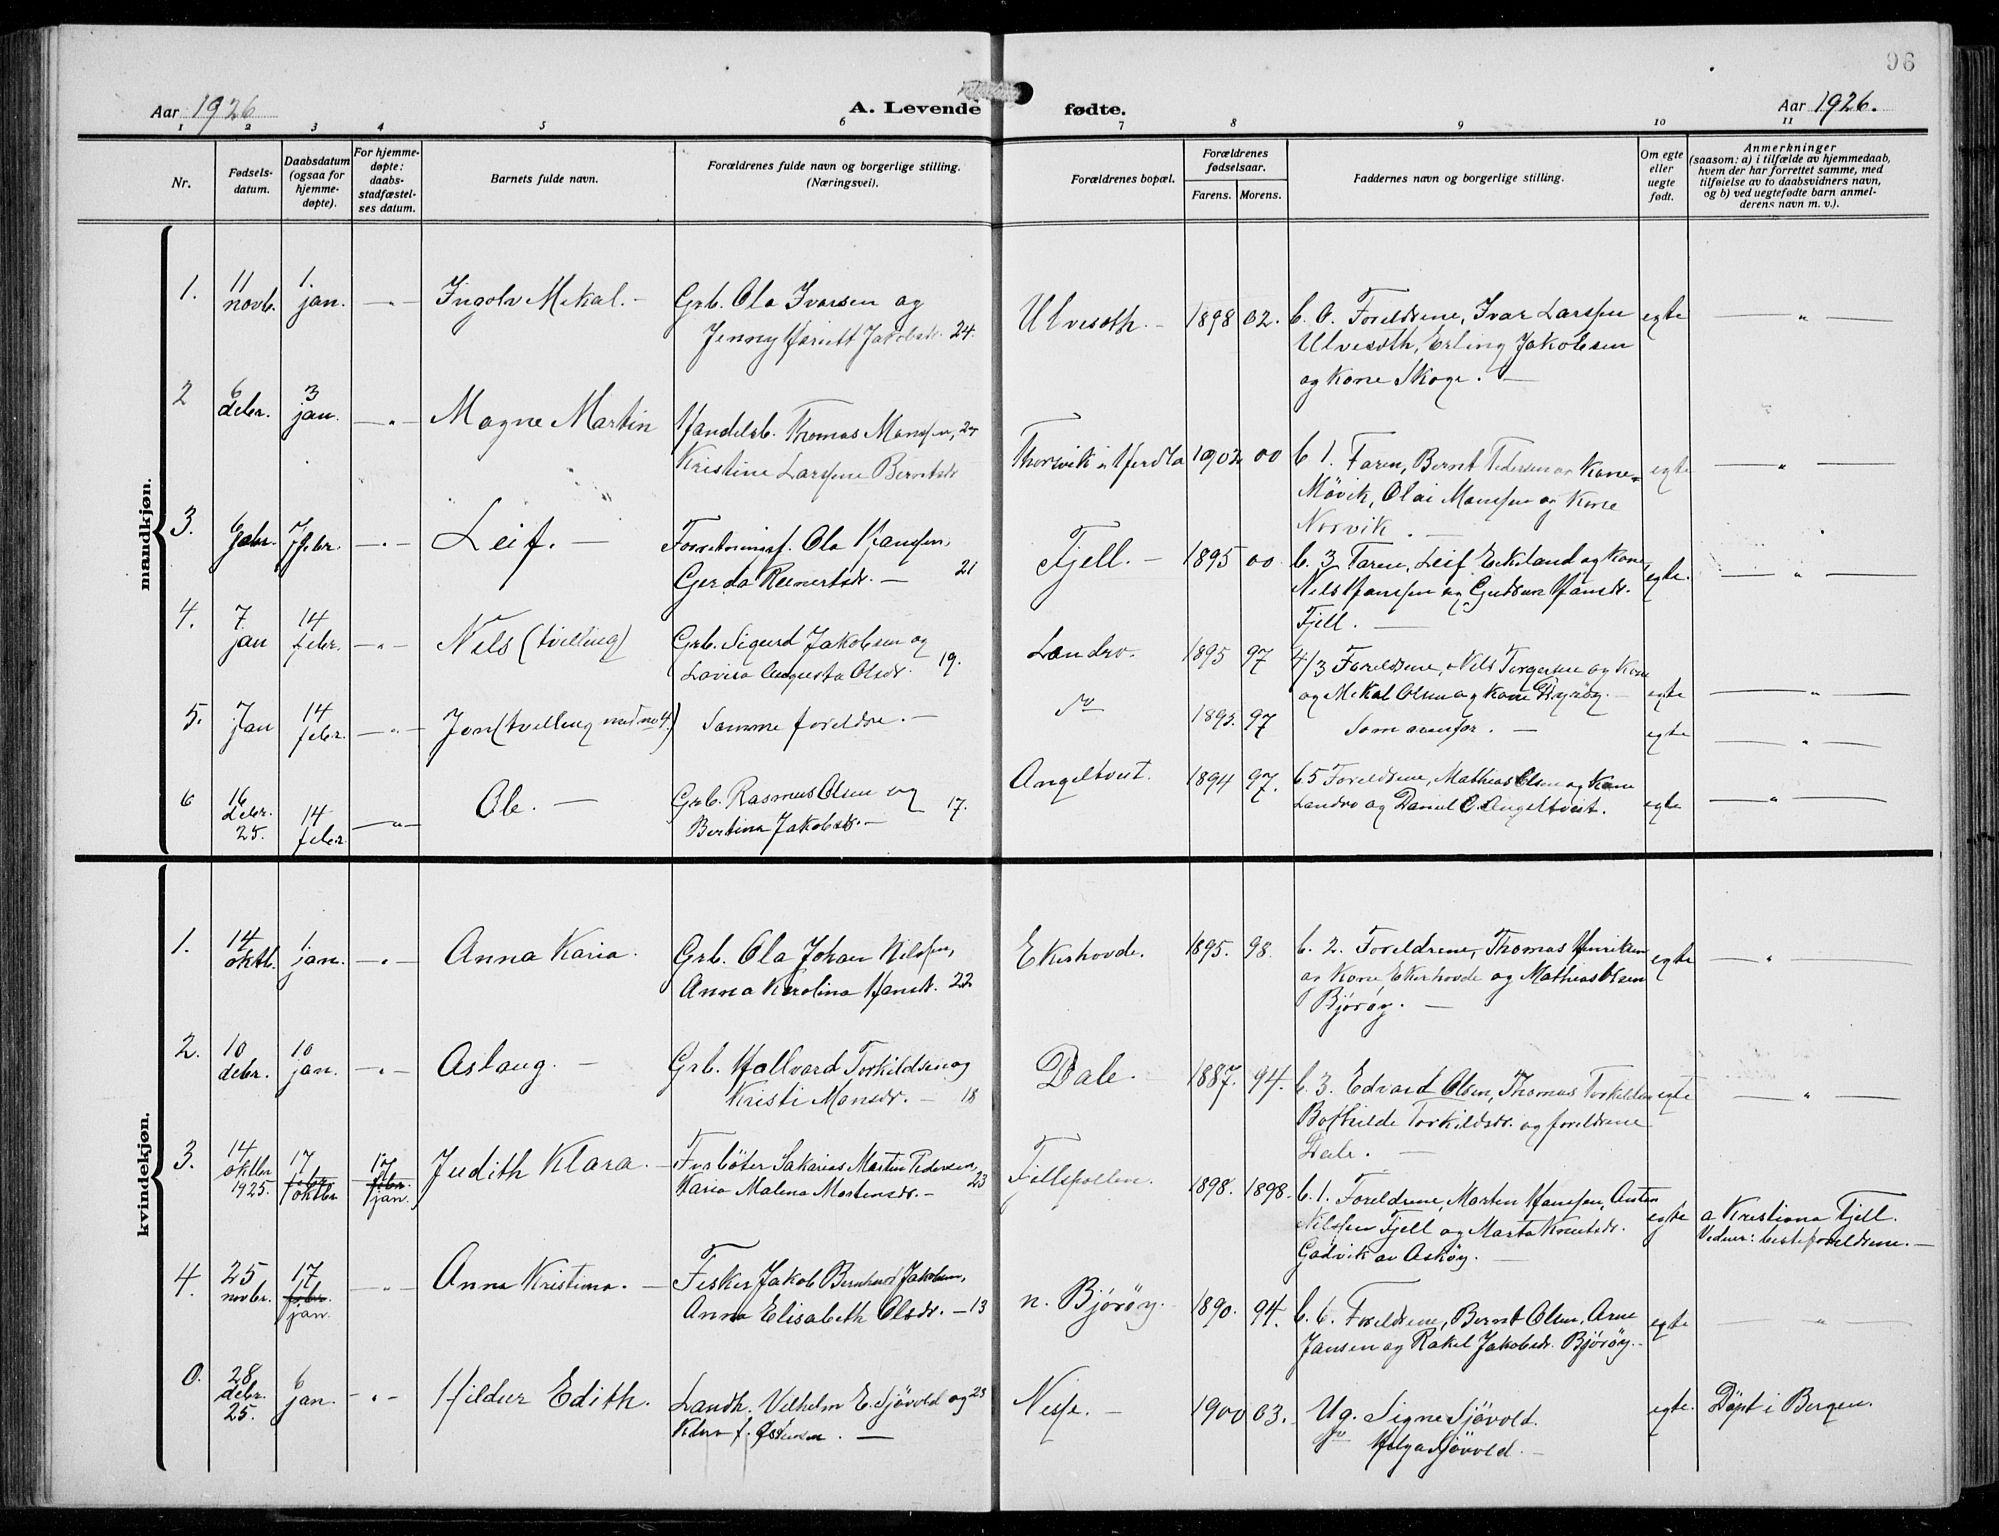 96
Aar 1926
A. Levende
fødte.
Aar 1926.
1 2 3 4 5 6 7 8 9 10 11
Nr.
Fødsels-
datum.
Daabsdatum
(ogsaa for
hjemme-
døpte).
For hjemme-
døpte:
daabs-
stadfæstel-
ses datum.
Barnets fulde navn.
Forældrenes fulde navn og borgerlige stilling.
(Næringsvei).
Forældrenes bopæl.
Forældrenes
fødselsaar.
Farens. Morens.
Faddernes navn og borgerlige stilling.
Om egte
eller
uegte
født.
Anmerkninger
(saasom: a) i tilfælde av hjemmedaab,
hvem der har forrettet samme, med
tilføielse av to daabsvidners navn,
og b) ved uegtefødte barn anmel-
derens navn m. v.).
mandkjøn.
1.
11
novb.
1.
jan.
— „ —
Ingolv Mikal. —
Grb. Ola Ivarsen og
Jenny Hariett Jakobsdr. 24.
Ulvesøth. —
1898 02.
b. 0. Foreldrene, Ivar Larssen
Ulvesøth, Erling Jakobsen
og kone Skoge. —
egte
— „ —
2
6
debr.
3
jan.
— „ —
Magne Martin
Handelsb. Thomas Monssen, 24
Kristine Larssine Berntsdr
Thorsvik i Herdla
1902 00
b 1. Faren, Bernt Pedersen og kone
Møvik, Olai Monssen og kone
Norvik. —
egte
— „ —
3.
6
debr.
7
febr.
— „ —
Leif. —
Forretningsf. Ola Hanssen,
Gerda Reinertsdr. — 21
Fjell. —
1895 00.
b. 3 Faren, Leif Ekeland og kone,
Nils Hanssen og Gudrun Hansdr.
Fjell. —
egte.
— „ —
4.
7
jan
14
febr.
— „ —
Nils (tvilling)
Grb. Sigurd Jakobsen og
Lovisa Augusta Olsdr. 19.
Landro.
1895 97
4/3 Foreldrene, Nils Torgersen og kone
og Mikal Olsen og kone Dyrøy. —
egte
— „ —
5.
7
jan
14
febr.
— „ —
Jon (tvilling med no 4.)
Samme foreldre. —
do
1895. 97
Som ovenfor. —
egte
— „ —
6
16
debr.
25.
14
febr.
— „ —
Ole. —
Grb. Rasmus Olsen og 17.
Bertina Jakobsdr. —
Angeltveit.
1894 97.
b5 Foreldrene, Mathias Olsen og kone
Landro og Daniel O. Angeltveit.
egte
— „ —
kvindekjøn.
1.
14
oktb.
1.
jan.
— „ —
Anna Karia.
Grb. Ola Johan Nilssen,
Anna Karolina Hansdr. 22
Ekerhovde.
1895. 98.
b. 2. Foreldrene, Thomas Henriksen
og kone, Ekerhovde og Mathias Olsen
Bjorøy. —
egte
— „ —
2.
10
debr.
10
jan.
— „ —
Aslaug. —
Grb. Hallvard Torkildsen og
Kristi Monsdr. — 18
Dale. —
1887. 94.
b. 3. Edvard Olsen, Thomas Torkildsen
Bothilde Torkildsdr. og foreldrene
Dale. —
egte
— „ —
3.
14
oktbr
1925.
17
febr.
oktbr
17
febr.
jan.
Judith Klara. —
Fyrbøter Sakarias Martin Pedersen,
Karia Malena Mortensdr. — 23
Fjellspollen.
1898. 1898.
b. 1. Foreldrene, Morten Hanssen, Anton
Nilssen Fjell og Marta Knutsdr.
Gadvik av Askøy. —
egte
a Kristiana Fjell.
Vidner: besteforeldrene. —
4.
25
novbr.
17
febr.
jan.
— „ —
Anna Kristina. —
Fisker Jakob Bernhard Jakobsen,
Anna Elisabeth Olsdr. — 13
n. Bjorøy.
1890. 94.
b. 6. Foreldrene, Bernt Olsen, Arne
Jansen og Rakel Jakobsdr. Bjorøy. —
egte
— „ —
0.
28
debr.
25.
6
jan.
— „ —
Hildur Edith.
Landh. Vilhelm E. Sjøvold og 23
Klara f. Østensen. —
Nesse. —
1900 03.
Ug. Signe Sjøvold.
do Helga Sjøvold. —
egte.
Døpt i Bergen.